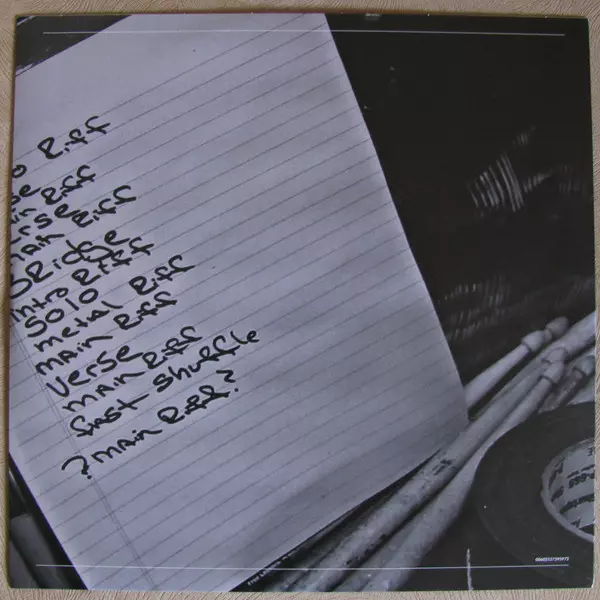 o Riff
se
ain Riff
erse
main Riff
Bridge
Intro Riff
Solo
metal Riff
main Riff
Verse
main Riff
fast shuffle
? main Riff?